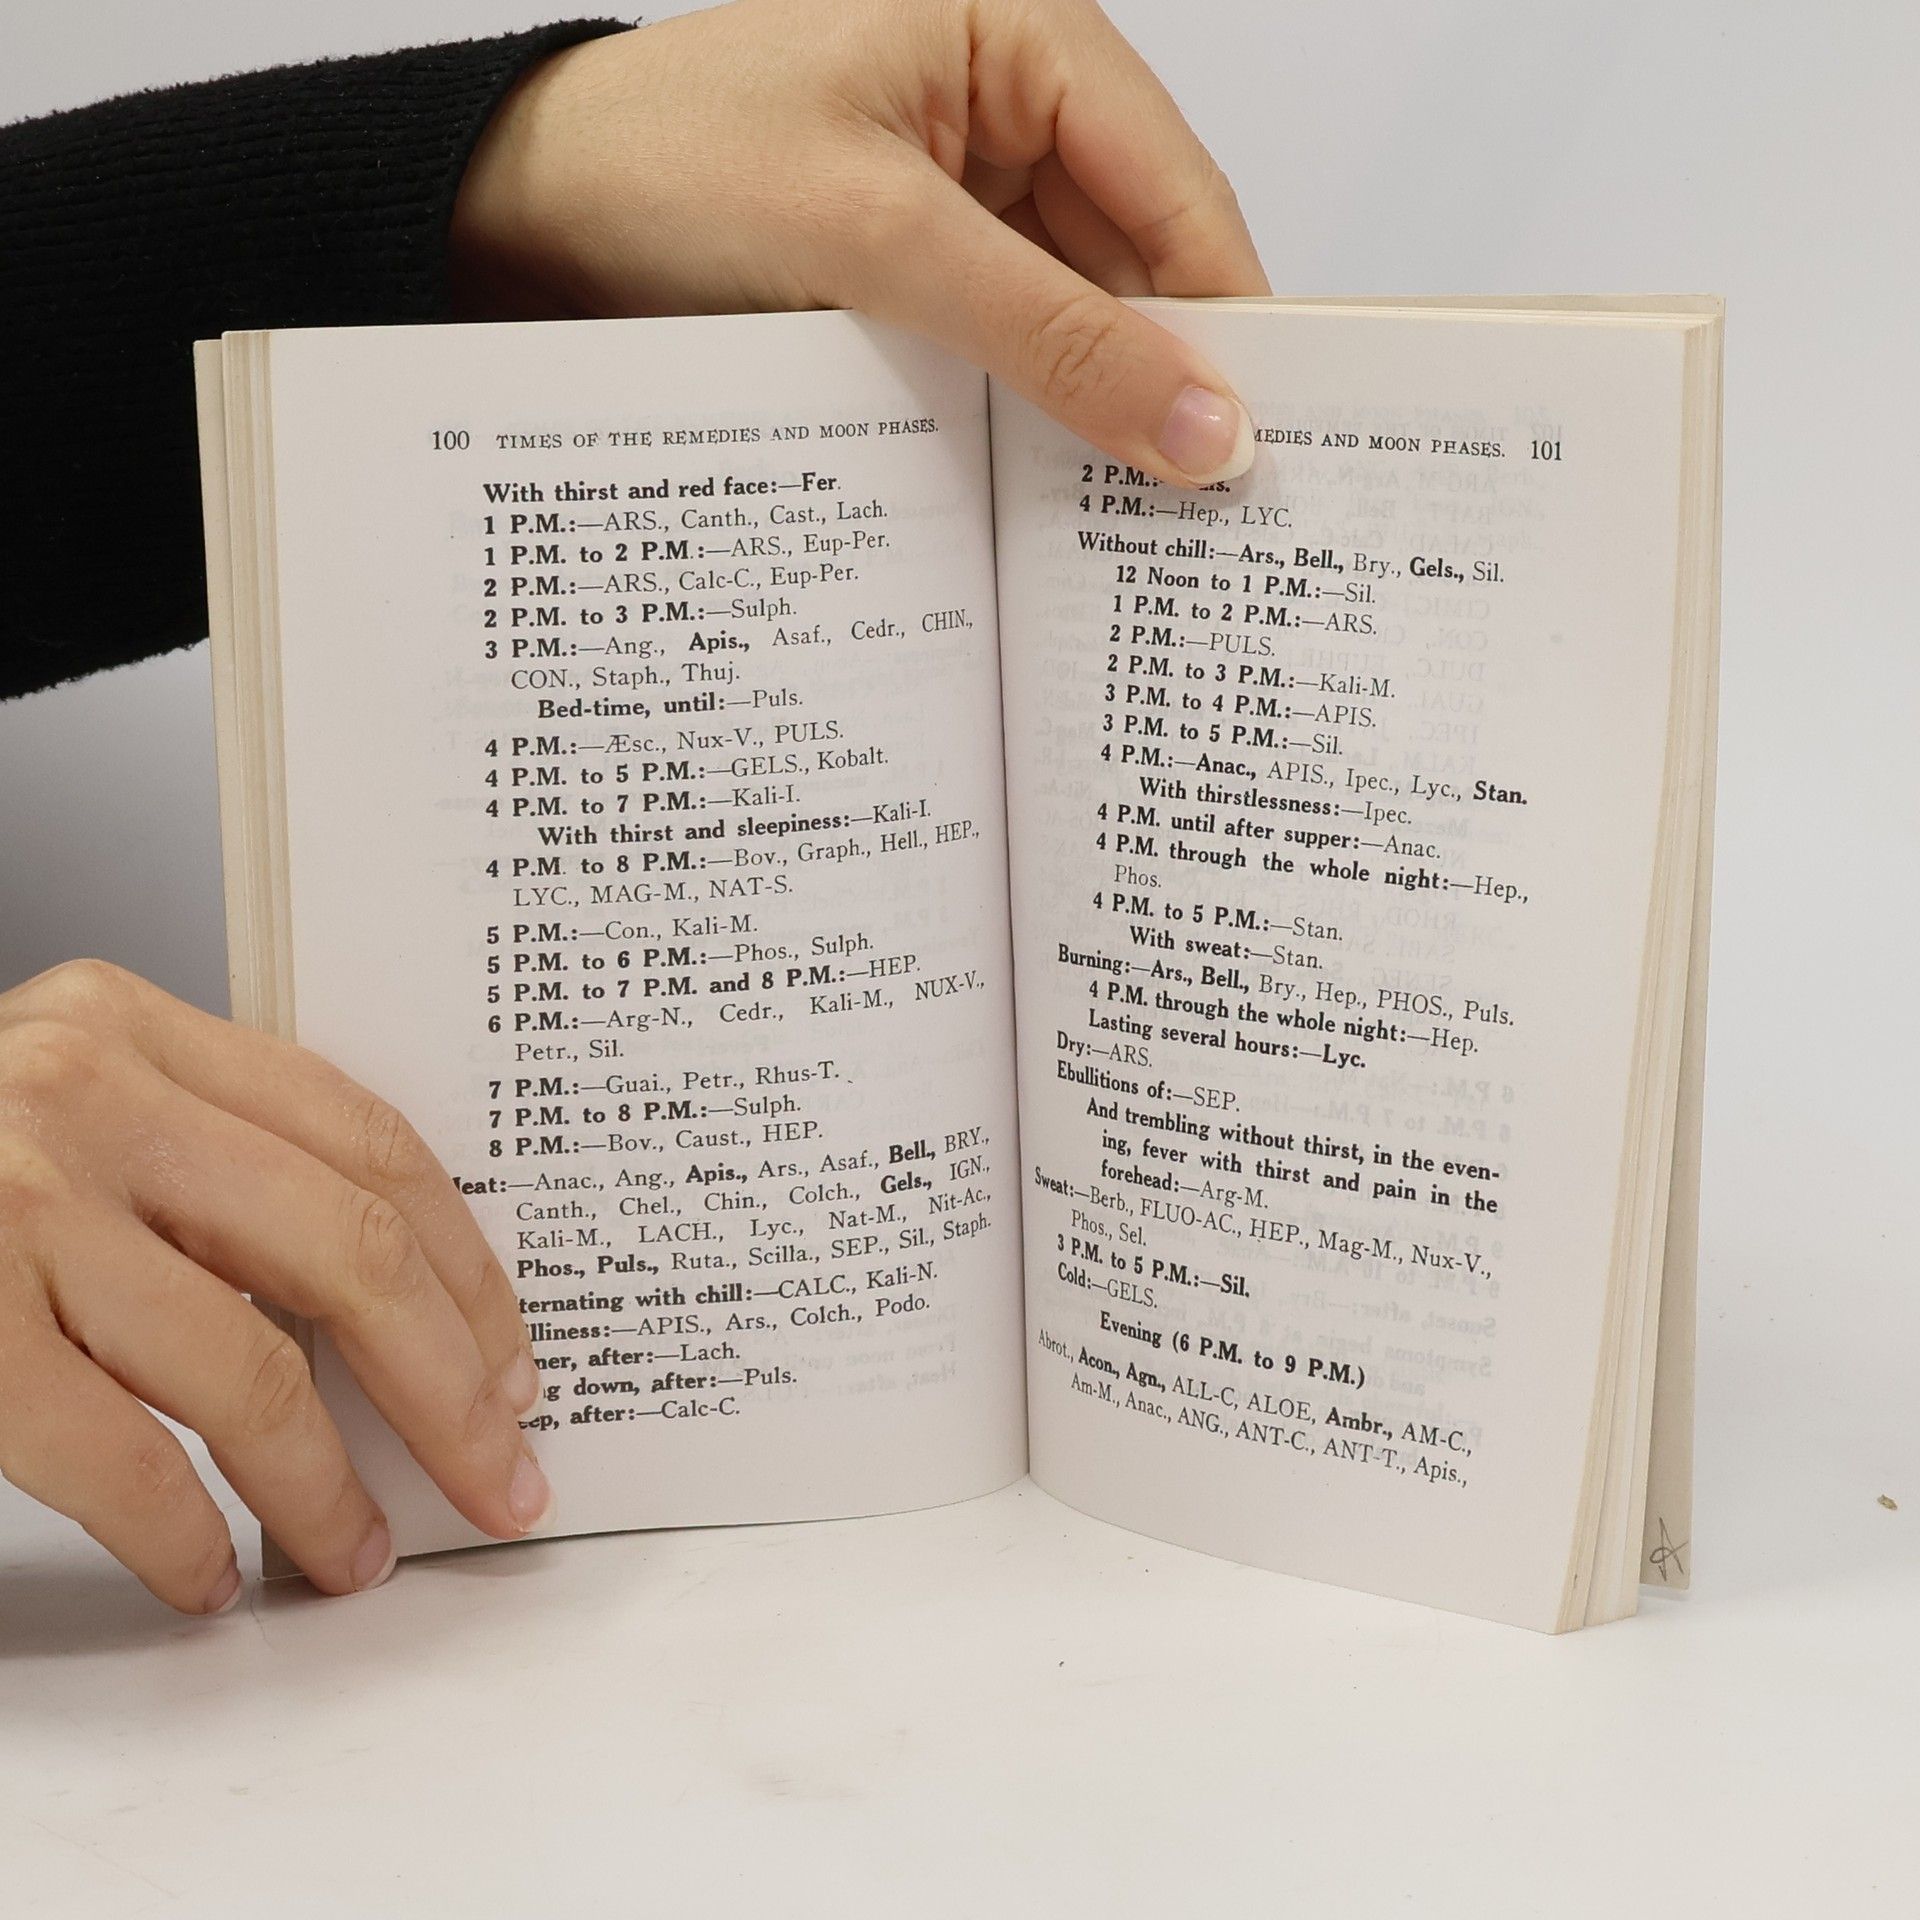 100 TIMES OF THE REMEDIES AND MOON PHASES.
With thirst and red face:—Fer.
1 P.M.:—ARS., Canth., Cast., Lach.
1 P.M. to 2 P.M.:—ARS., Eup-Per.
2 P.M.:—ARS., Calc-C., Eup-Per.
2 P.M. to 3 P.M.:—Sulph.
3 P.M.:—Ang., Apis., Asaf., Cedr., CHIN.,
CON., Staph., Thuj.
Bed-time, until:—Puls.
4 P.M.:—Æsc., Nux-V., PULS.
4 P.M. to 5 P.M.:—GELS., Kobalt.
4 P.M. to 7 P.M.:—Kali-I.
With thirst and sleepiness:—Kali-I.
4 P.M. to 8 P.M.:—Bov., Graph., Hell., HEP.,
LYC., MAG-M., NAT-S.
5 P.M.:—Con., Kali-M.
5 P.M. to 6 P.M.:—Phos., Sulph.
5 P.M. to 7 P.M. and 8 P.M.:—HEP.
6 P.M.:—Arg-N., Cedr., Kali-M., NUX-V.,
Petr., Sil.
7 P.M.:—Guai., Petr., Rhus-T.
7 P.M. to 8 P.M.:—Sulph.
8 P.M.:—Bov., Caust., HEP.
Heat:—Anac., Ang., Apis., Ars., Asaf., Bell., BRY.,
Canth., Chel., Chin., Colch., Gels., IGN.,
Kali-M., LACH., Lyc., Nat-M., Nit-Ac.,
Phos., Puls., Ruta., Scilla., SEP., Sil., Staph.
with chill:—CALC., Kali-N.
:—APIS., Ars., Colch., Podo.
after:—Lach.
down, after:—Puls.
after:—Calc-C.
AND MOON PHASES. 101
2 P.M.:
4 P.M.:—Hep., LYC.
Without chill:—Ars., Bell., Bry., Gels., Sil.
12 Noon to 1 P.M.:—Sil.
1 P.M. to 2 P.M.:—ARS.
2 P.M.:—PULS.
2 P.M. to 3 P.M.:—Kali-M.
3 P.M. to 4 P.M.:—APIS.
3 P.M. to 5 P.M.:—Sil.
4 P.M.:—Anac., APIS., Ipec., Lyc., Stan.
With thirstlessness:—Ipec.
4 P.M. until after supper:—Anac.
4 P.M. through the whole night:—Hep.,
Phos.
4 P.M. to 5 P.M.:—Stan.
With sweat:—Stan.
Burning:—Ars., Bell., Bry., Hep., PHOS., Puls.
4 P.M. through the whole night:—Hep.
Lasting several hours:—Lyc.
Dry:—ARS.
Ebullitions of:—SEP.
And trembling without thirst, in the even-
ing, fever with thirst and pain in the
forehead:—Arg-M.
Sweat:—Berb., FLUO-AC., HEP., Mag-M., Nux-V.,
Phos., Sel.
3 P.M. to 5 P.M.:—Sil.
Cold:—GELS.
Evening (6 P.M. to 9 P.M.)
Abrot., Acon., Agn., ALL-C, ALOE, Ambr., AM-C.,
Am-M., Anac., ANG., ANT-C., ANT-T., Apis.,